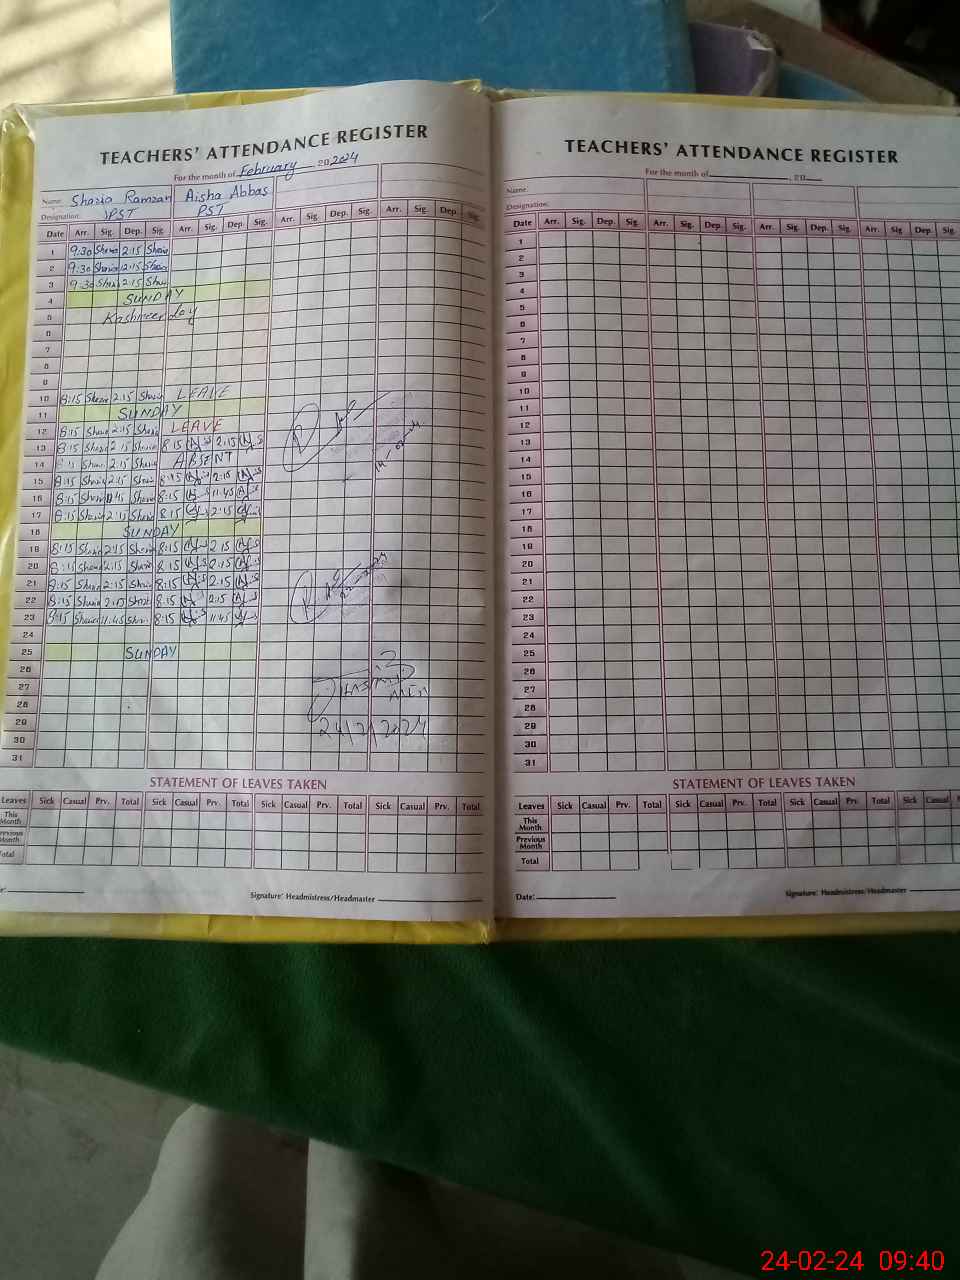 TEACHERS' ATTENDANCE REGISTER
For the month of February 20 2024
Name: Shazia Ramzan Aisha Abbas
Designation: PST PST
Date Arr. Sig. Dep. Sig. Arr. Sig. Dep. Sig. Arr. Sig. Dep. Sig. Arr. Sig. Dep. Sig.
1 9:30 2:15
2 9:30 2:15
3 9:30 2:15
4 SUNDAY
5 Kashmeer Day
6
7
8
9
10 8:15 2:15 LEAVE
11 SUNDAY
12 8:15 2:15 LEAVE
13 8:15 2:15 8:15 2:15
14 8:15 2:15 ABSENT
15 8:15 2:15 8:15 2:15
16 8:15 11:45 8:15 11:45
17 8:15 2:15 8:15 2:15
18 SUNDAY
19 8:15 2:15 8:15 2:15
20 8:15 2:15 8:15 2:15
21 8:15 2:15 8:15 2:15
22 8:15 2:15 8:15 2:15
23 11:45 8:15 11:45
24
25 SUNDAY
26
27
28
29 24/2/2024
30
31
STATEMENT OF LEAVES TAKEN
Leaves Sick Casual Prv. Total Sick Casual Prv. Total Sick Casual Prv. Total Sick Casual Prv. Total
This Month
Previous Month
Total
Signature: Headmistress/Headmaster
TEACHERS' ATTENDANCE REGISTER
For the month of , 20
Name:
Designation:
Date Arr. Sig. Dep. Sig. Arr. Sig. Dep. Sig. Arr. Sig. Dep. Sig. Arr. Sig. Dep. Sig.
1
2
3
4
5
6
7
8
9
10
11
12
13
14
15
16
17
18
19
20
21
22
23
24
25
26
27
28
29
30
31
STATEMENT OF LEAVES TAKEN
Leaves Sick Casual Prv. Total Sick Casual Prv. Total Sick Casual Prv. Total Sick Casual
This Month
Previous Month
Total
Date: Signature: Headmistress/Headmaster
24-02-24 09:40